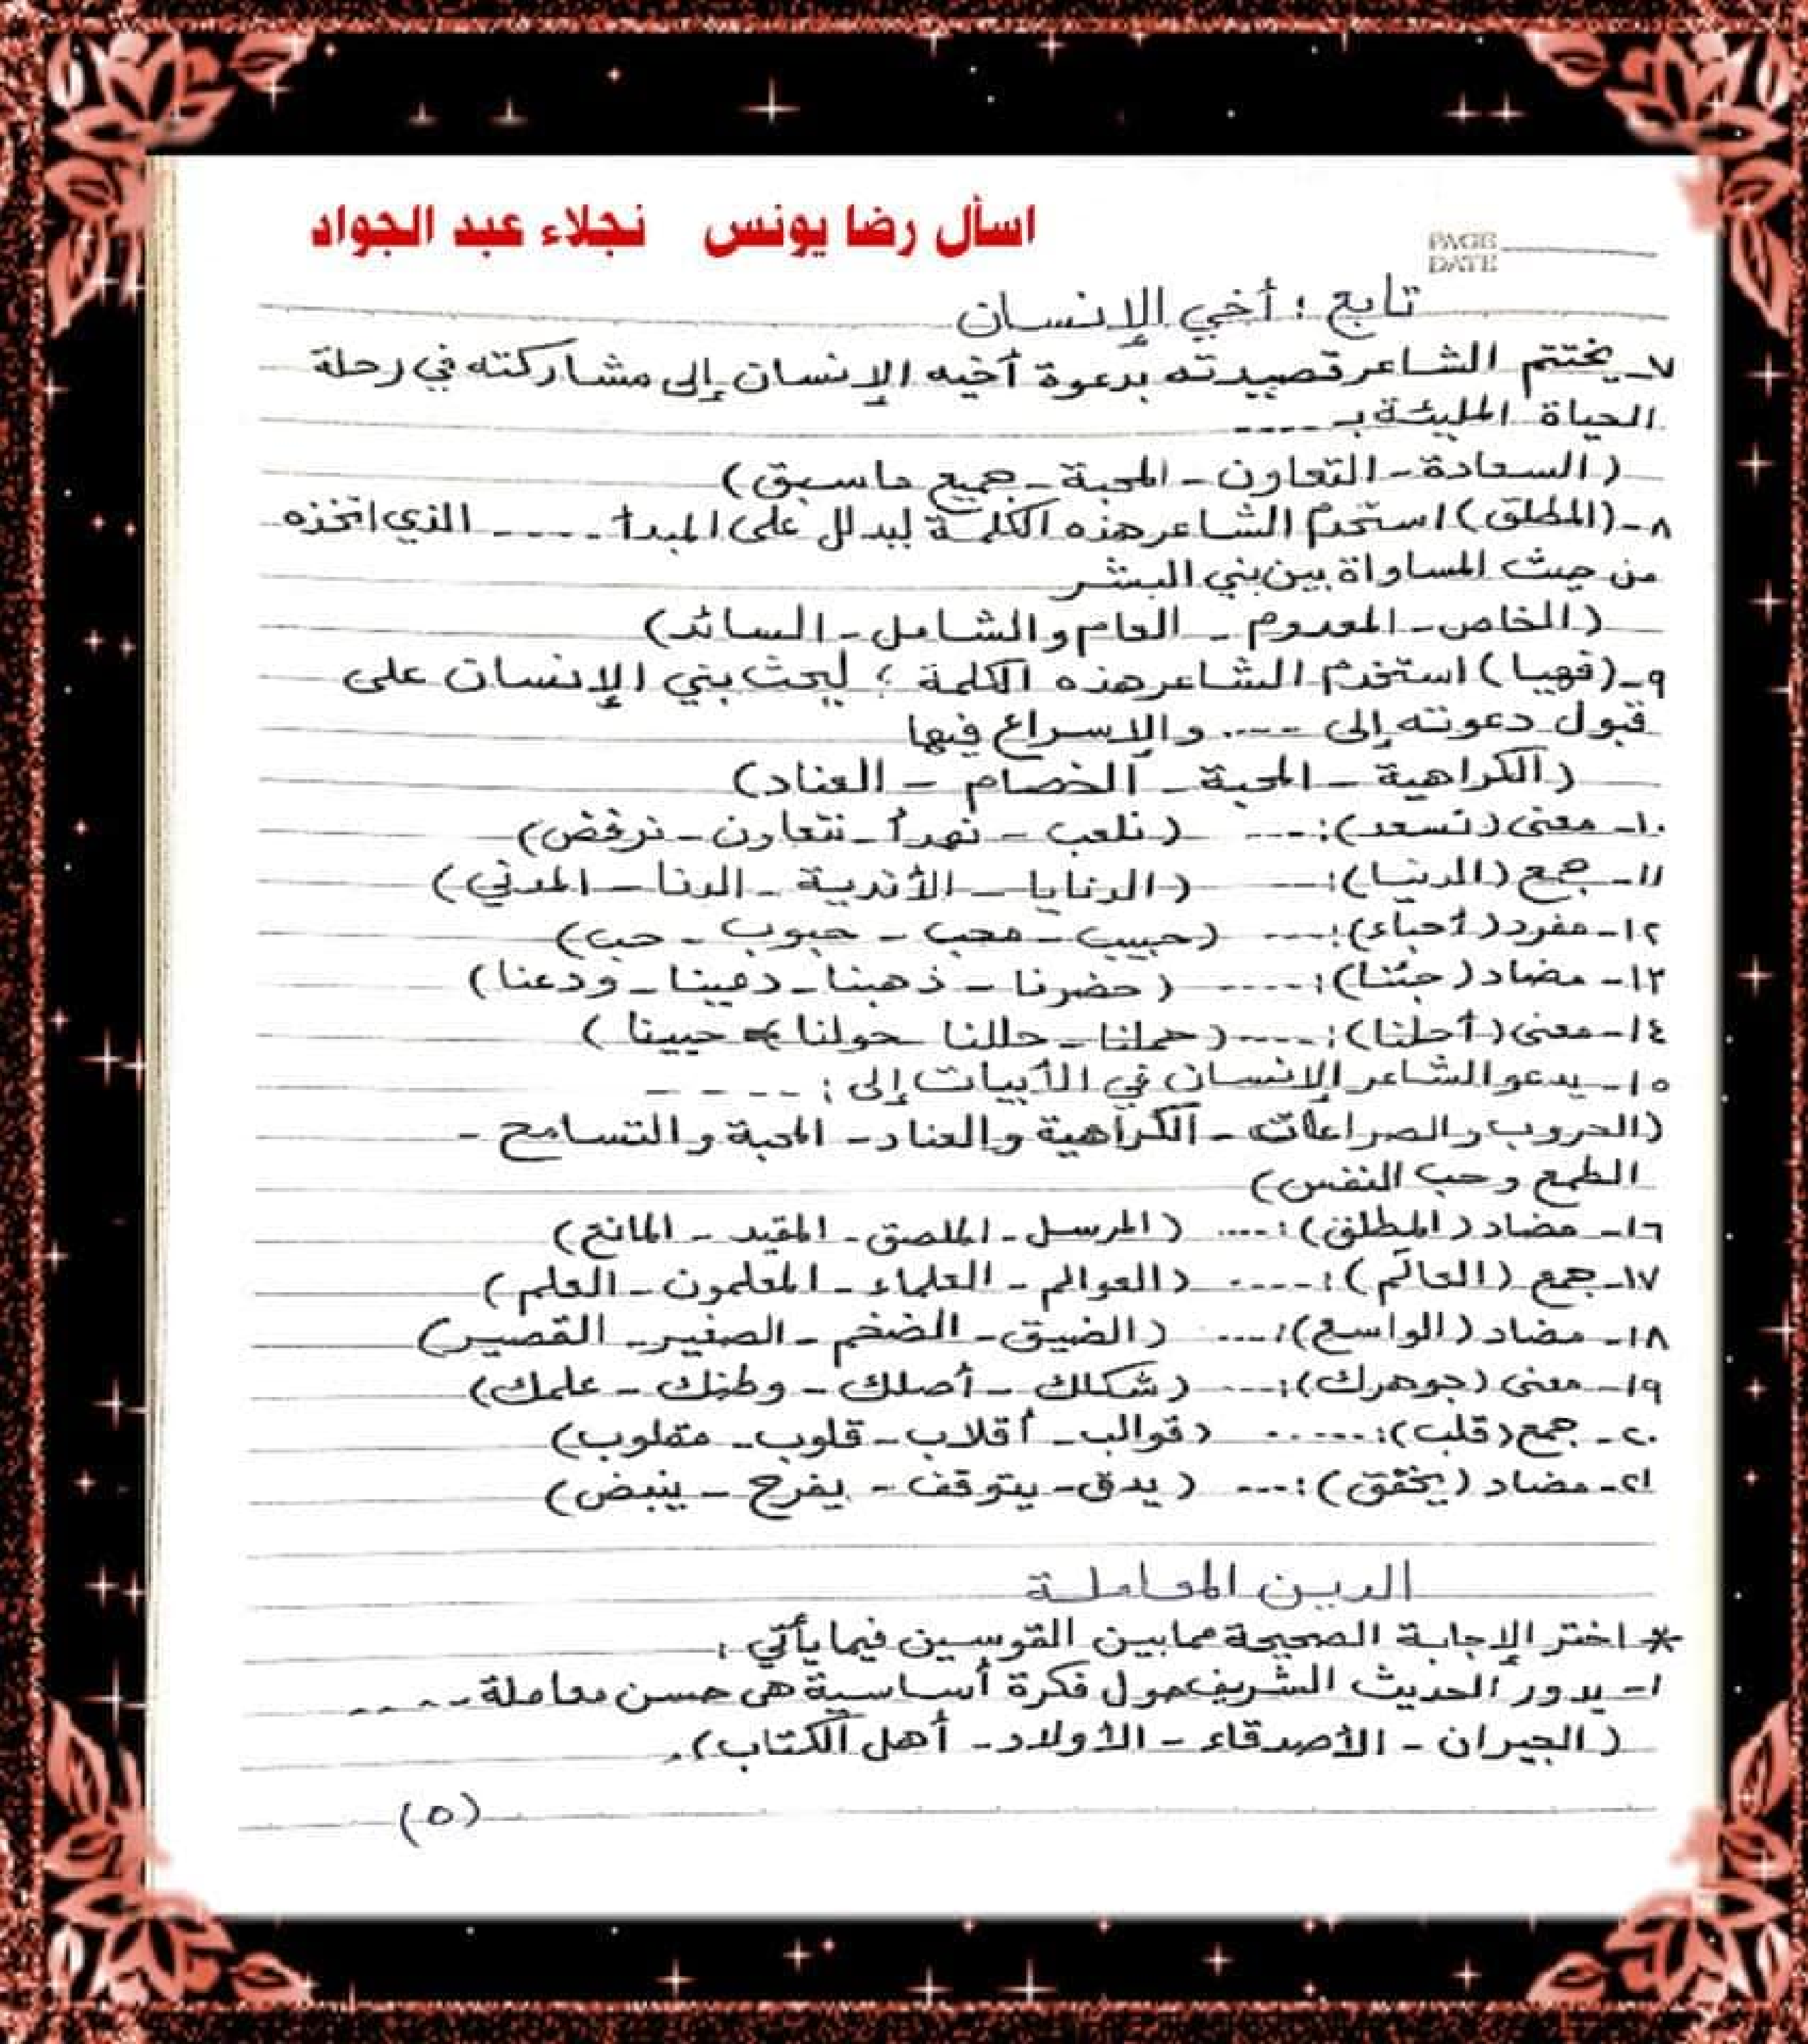 اسأل رضا يونس نجلاء عبد الجواد
PAGE
DATE
تابع : أخي الإنسان
٧- يختتم الشاعر قصيدته بدعوة أخيه الإنسان إلى مشاركته في رحلة
الحياة المليئة بـ ----
( السعادة - التعاون - المحبة - جميع ما سبق )
٨- (المطلق) استخدم الشاعر هذه الكلمة ليدلل على المبدأ ---- الذي اتخذه
من حيث المساواة بين بني البشر
( الخاص - المعدوم - العام والشامل - السائد )
٩- (فهيا) استخدم الشاعر هذه الكلمة ؛ ليحث بني الإنسان على
قبول دعوته إلى ---- والإسراع فيها
( الكراهية - المحبة - الخصام - العناد )
١٠- معنى (نسعد) : --- ( نلعب - نهدأ - نتعاون - نرفض )
١١- جمع (الدنيا) : --- ( الدنايا - الأندية - الدنا - المدني )
١٢- مفرد (أحباء) : --- ( حبيب - محب - حبوب - حب )
١٣- مضاد (جئنا) : ---- ( حضرنا - ذهبنا - دعينا - ودعنا )
١٤- معنى (أحلنا) : ---- ( حملنا - حللنا حولنا - حبينا )
١٥- يدعو الشاعر الإنسان في الأبيات إلى : ----
( الحروب والصراعات - الكراهية والعناد - المحبة والتسامح -
الطمع وحب النفس )
١٦- مضاد (المطلق) : ---- ( المرسل - الملصق - المقيد - المانع )
١٧- جمع (العالَم) : ---- ( العوالم - العلماء - المعلمون - العلم )
١٨- مضاد (الواسع) : ---- ( الضيق - الضخم - الصغير - القصير )
١٩- معنى (جوهرك) : ---- ( شكلك - أصلك - وطنك - علمك )
٢٠- جمع (قلب) : ----- ( قوالب - أقلاب - قلوب - مقلوب )
٢١- مضاد (يخفق) : --- ( يدق - يتوقف - يفرح - ينبض )
الدين المعاملة
* اختر الإجابة الصحيحة مما بين القوسين فيما يأتي :
١- يدور الحديث الشريف حول فكرة أساسية هى حسن معاملة ----
( الجيران - الأصدقاء - الأولاد - أهل الكتاب ).
(٥)